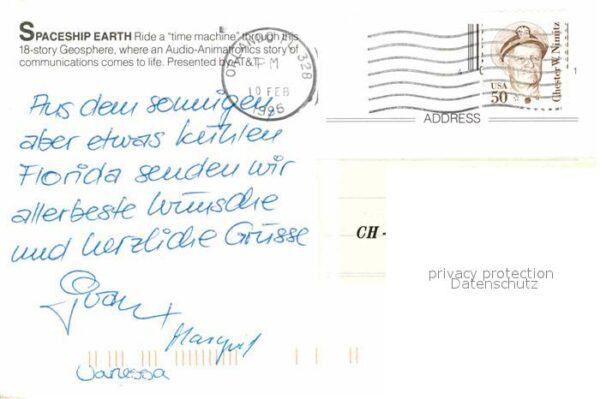 SPACESHIP EARTH Ride a "time machine" through this
18-story Geosphere, where an Audio-Animatronics story of
communications comes to life. Presented by AT&T.
ORLANDO FL 328
PM
10 FEB
1995
Chester W. Nimitz
USA
50
1
ADDRESS
Aus dem sonnigen,
aber etwas kühlen
Florida senden wir
allerbeste Wünsche
und herzliche Grüsse
+
Margrit
Vanessa
CH -
privacy protection
Datenschutz